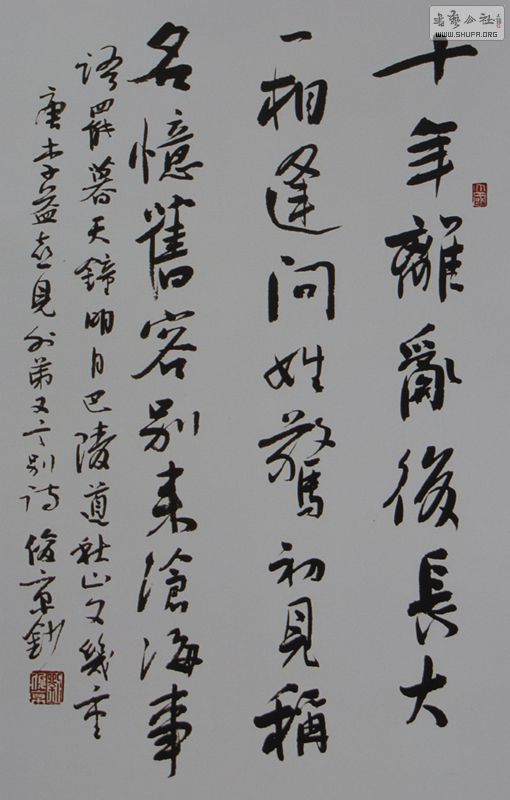 十年離亂後長大
一相逢問姓驚初見稱
名憶舊容別来滄海事
語罷暮天鐘明日巴陵道秋山又幾重
唐李益喜見外弟又言别詩 俊京鈔
書藝公社
WWW.SHUFA.ORG